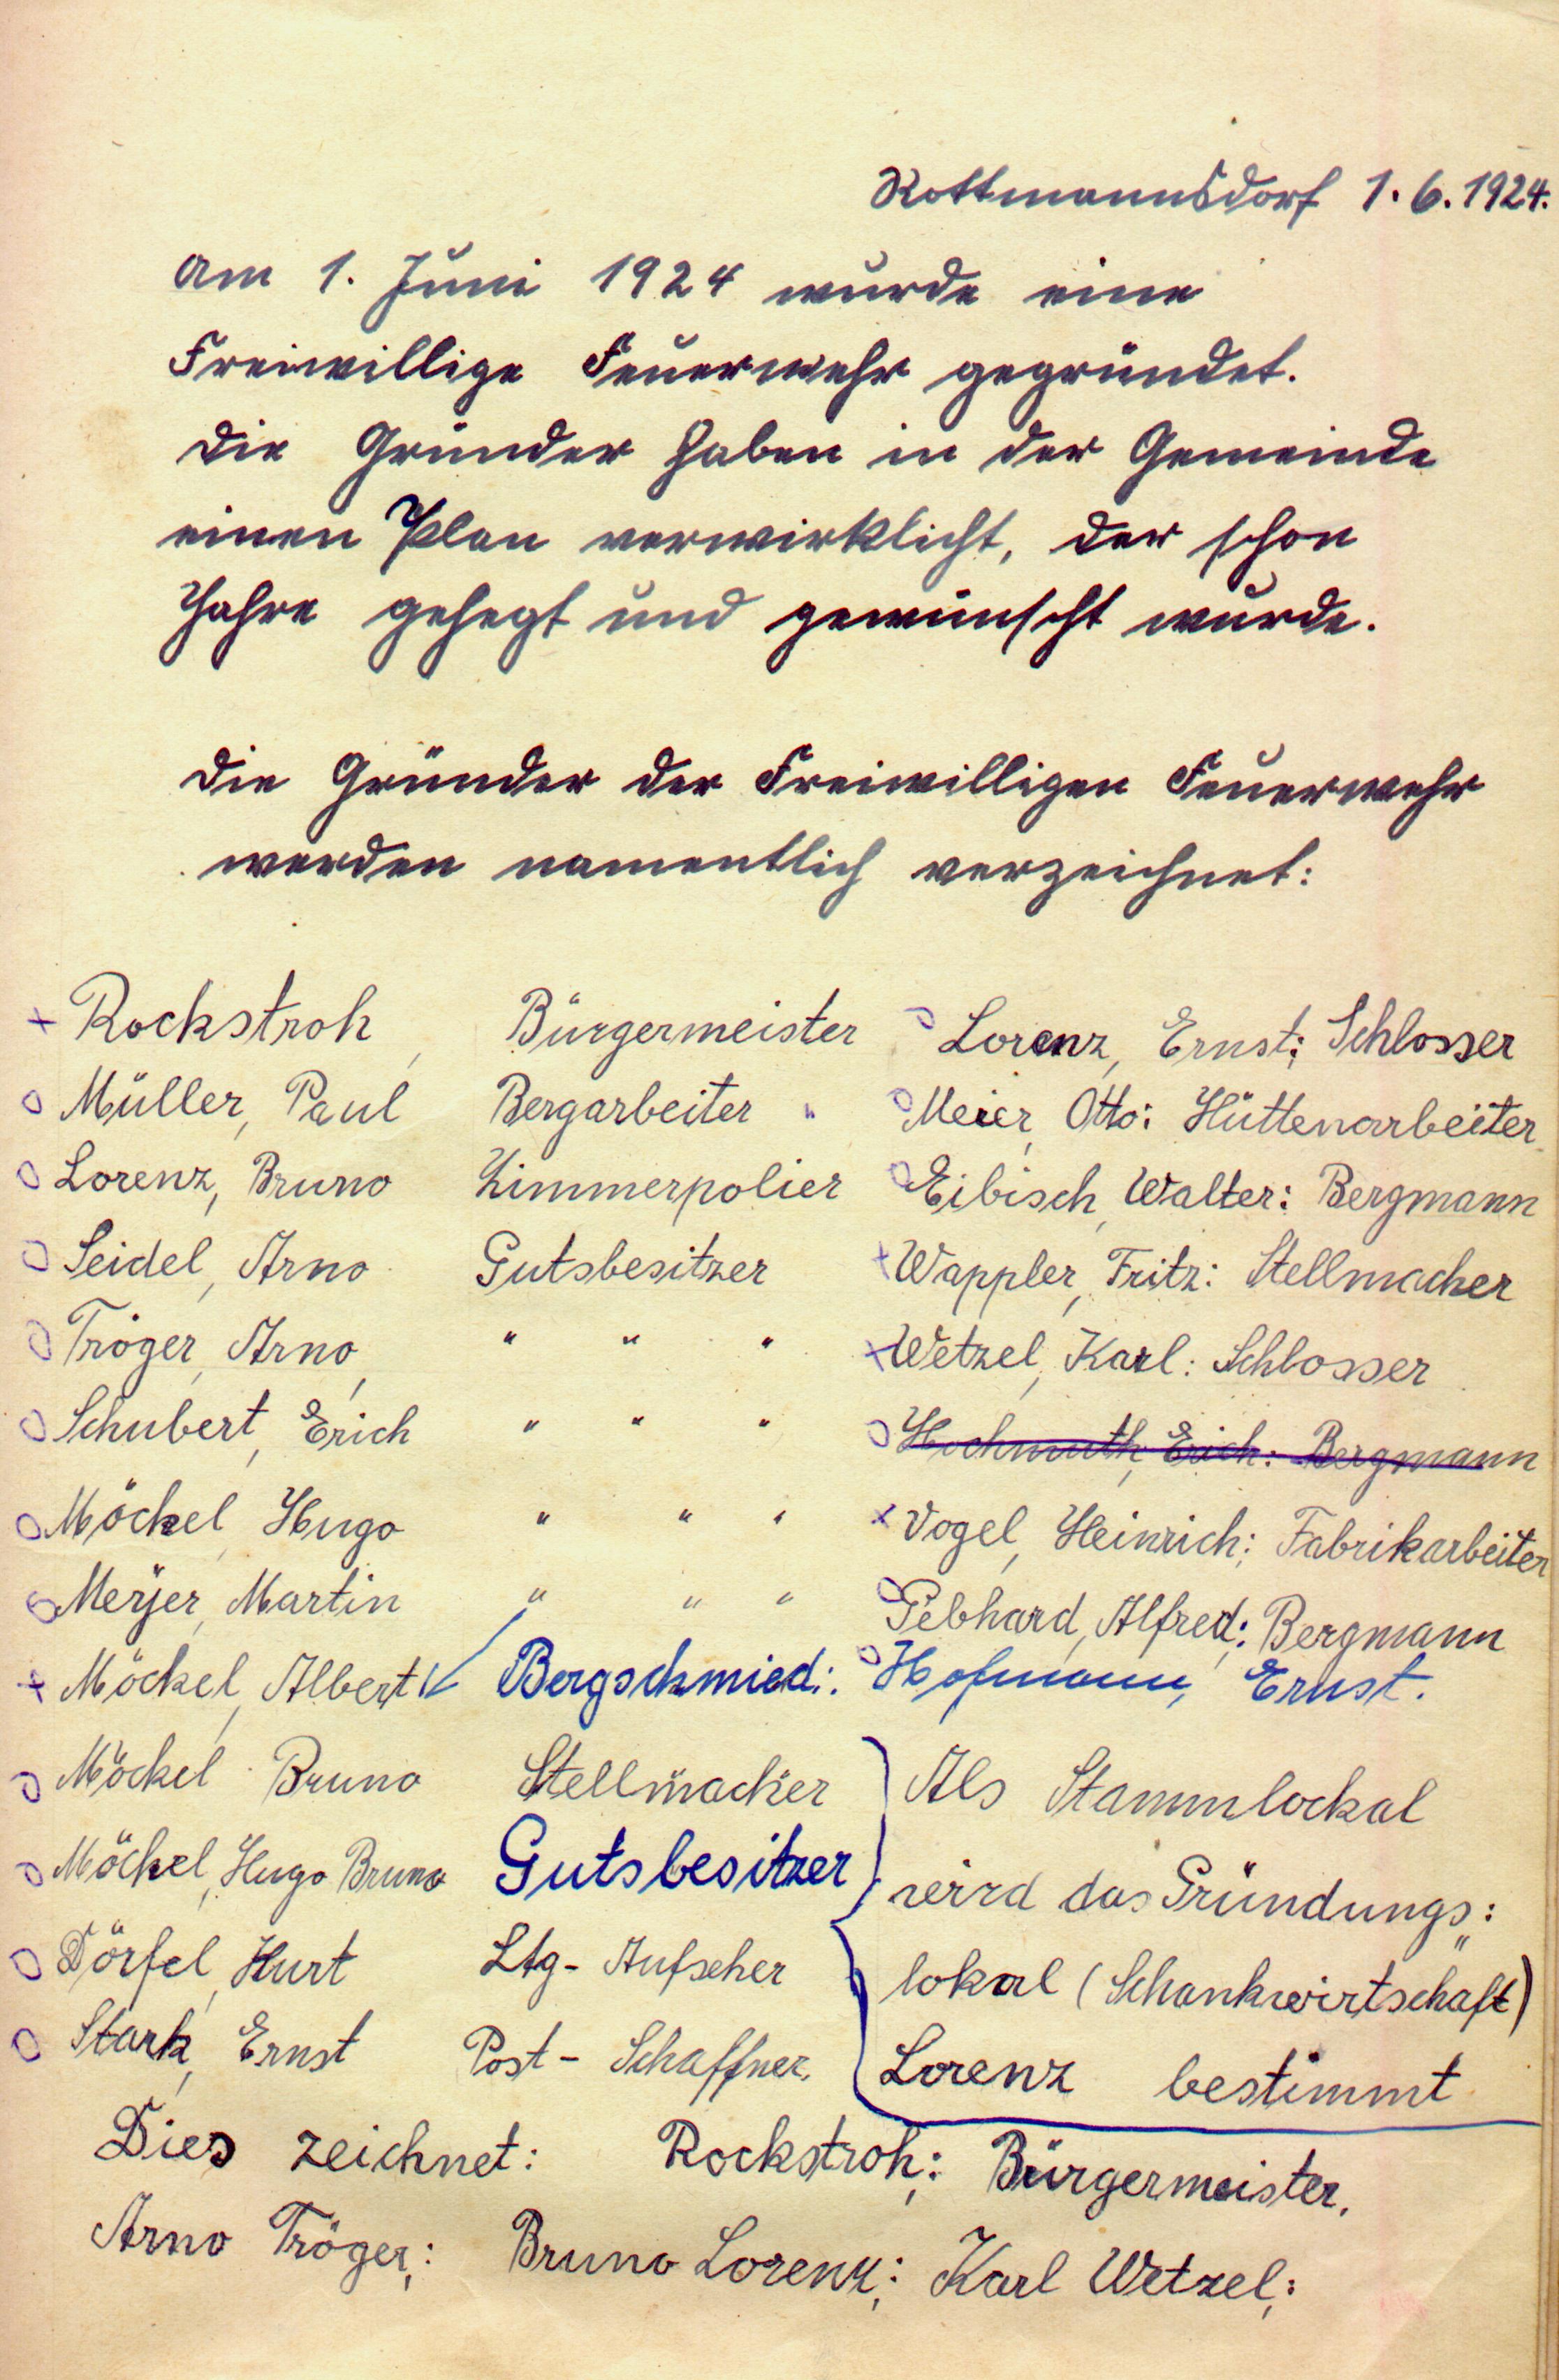 Rottmannsdorf 1.6.1924.
Am 1. Juni 1924 wurde eine
Freiwillige Feuerwehr gegründet.
Die Gründer haben in der Gemeinde
einen Plan verwirklicht, der schon
Jahre gehegt und gewünscht wurde.
Die Gründer der Freiwilligen Feuerwehr
werden namentlich verzeichnet:
+ Rockstroh, Bürgermeister
o Müller, Paul Bergarbeiter "
o Lorenz, Bruno Zimmerpolier
o Seidel, Arno Gutsbesitzer
o Tröger, Arno, " " "
o Schubert, Erich " " "
o Möckel, Hugo " " "
o Meÿer, Martin " " "
+ Möckel, Albert Bergschmied:
o Möckel Bruno Stellmacher
o Möckel, Hugo Bruno Gutsbesitzer
o Dörfel, Kurt Ltg- Aufseher
o Stark, Ernst Post- Schaffner.
o Lorenz, Ernst: Schlosser
o Meier, Otto: Hüttenarbeiter
o Eibisch, Walter: Bergmann
+ Wappler, Fritz: Stellmacher
+ Wetzel, Karl: Schlosser
o Hochmuth, Erich: Bergmann
x Vogel, Heinrich: Fabrikarbeiter
o Gebhard, Alfred: Bergmann
o Hofmann, Ernst.
Als Stammlockal
wird das Gründungs:
lokal (Schankwirtschaft)
Lorenz bestimmt
Dies zeichnet: Rockstroh: Bürgermeister.
Arno Tröger: Bruno Lorenz: Karl Wetzel: